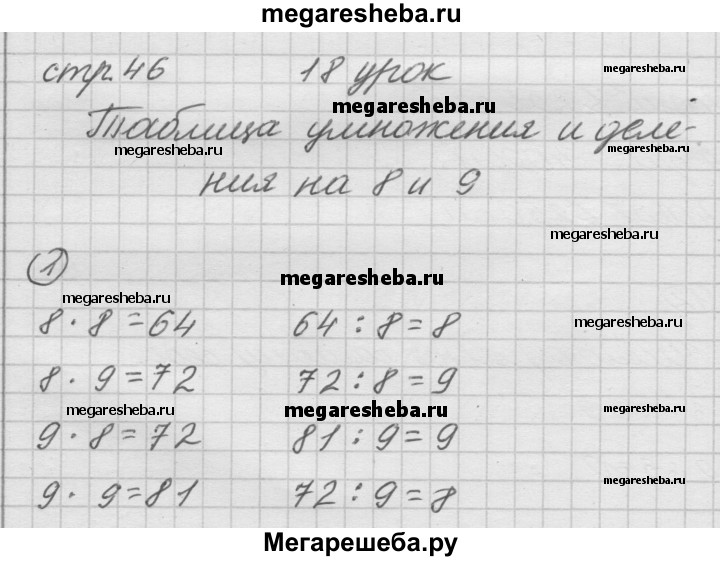 megaresheba.ru
стр. 46 18 урок megaresheba.ru
megaresheba.ru
Таблица умножения и деле-
megaresheba.ru megaresheba.ru
ния на 8 и 9
megaresheba.ru
1
megaresheba.ru
megaresheba.ru
8 · 8 = 64 64 : 8 = 8 megaresheba.ru
8 · 9 = 72 72 : 8 = 9
megaresheba.ru megaresheba.ru megaresheba.ru
9 · 8 = 72 81 : 9 = 9
megaresheba.ru
9 · 9 = 81 72 : 9 = 8
Мегарешеба.ру